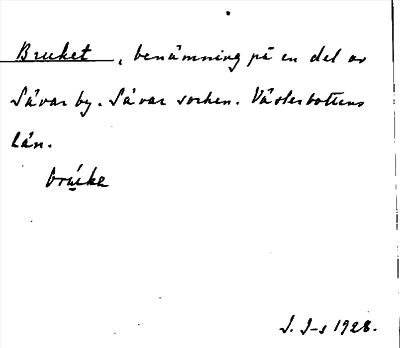 Bruket, benämning på en del av
Sävar by. Sävar socken. Västerbottens
län.
brúke
J. J-s 1928.